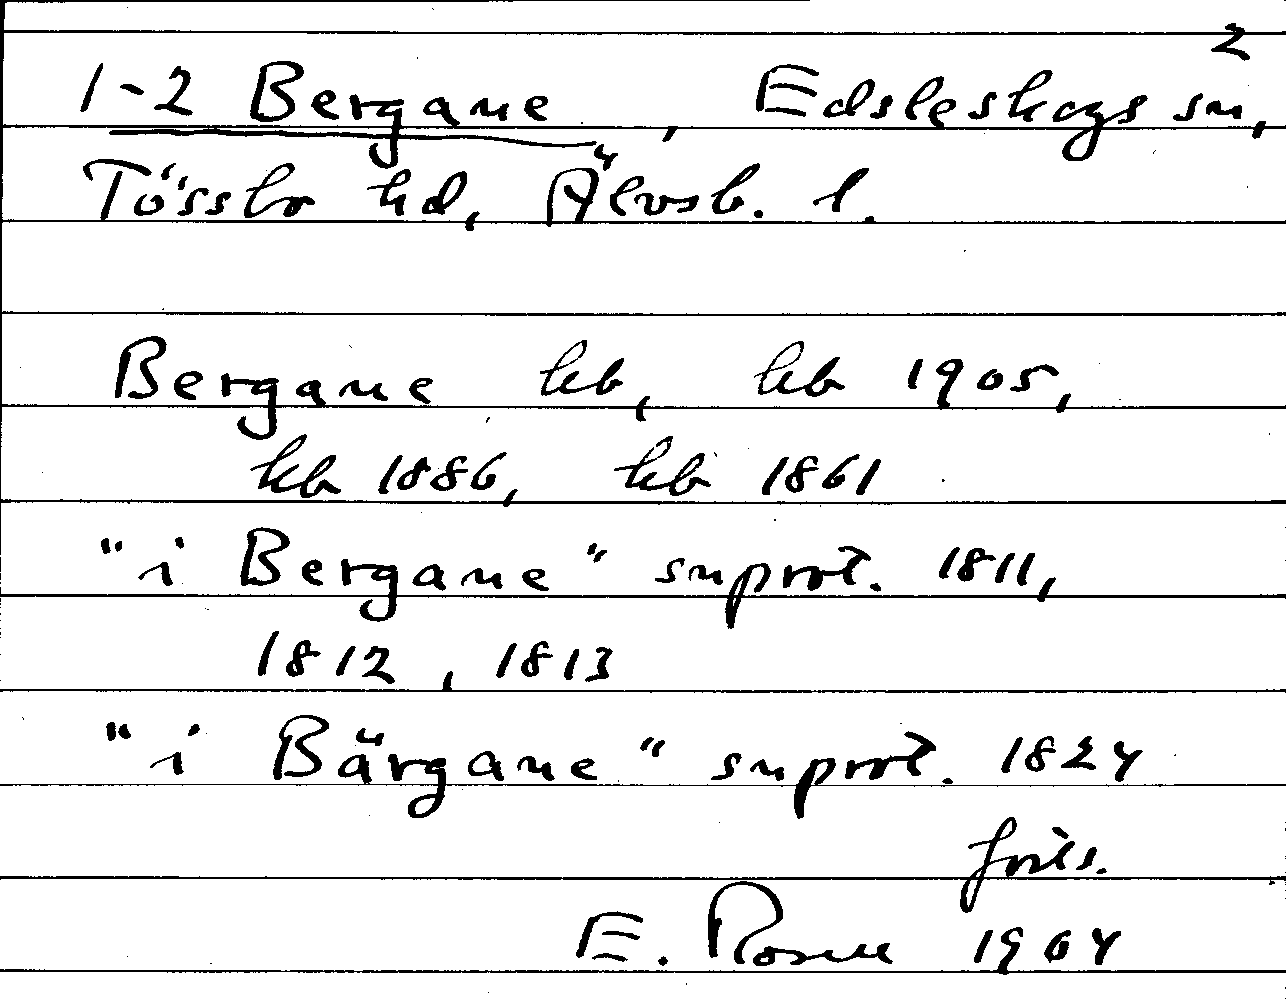 2
1-2 Bergane, Edsleskogs sn,
Tössbo hd, Älvsb. l.
Bergane kb, kb 1905,
kb 1886, kb 1861
"i Bergane" snprot. 1811,
1812, 1813
"i Bärgane" snprot. 1824
forts.
E. Rosne 1964